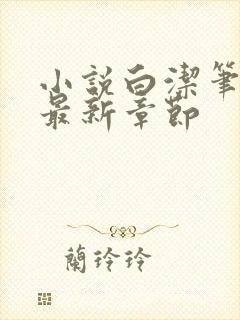 小説白潔筆
最新章節
蘭玲玲